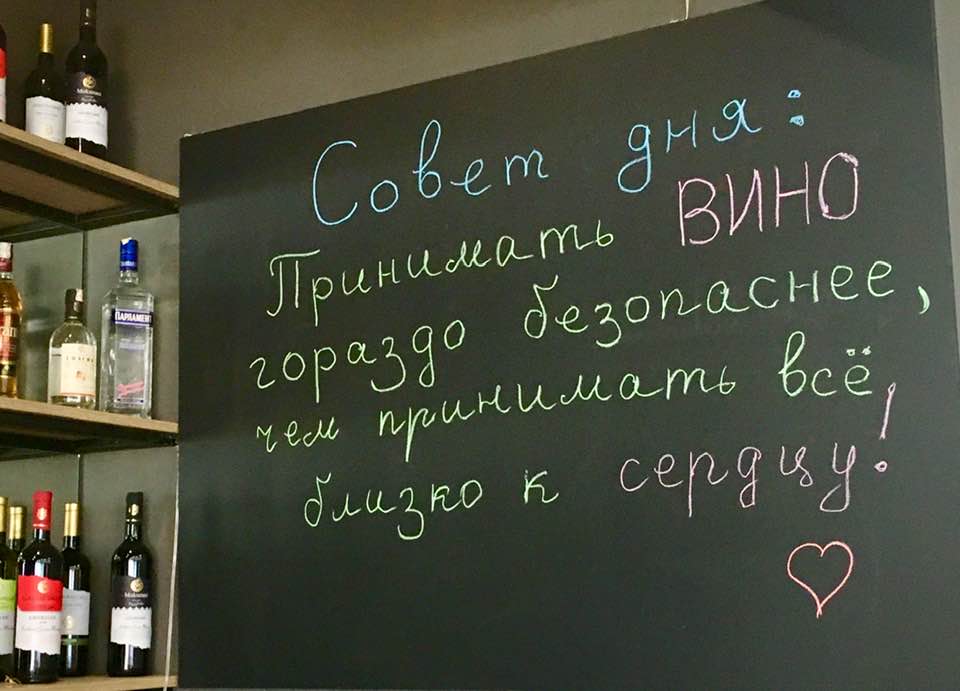 Совет дня:
Принимать ВИНО
гораздо безопаснее,
чем принимать всё
близко к сердцу!
ПАРЛАМЕНТ